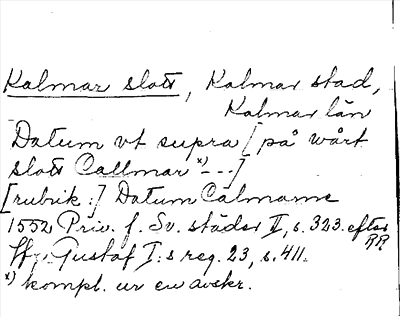 Kalmar slott, Kalmar stad,
Kalmar län
Datum vt supra [på wårt
slott Callmar x) ---]
[rubrik:] Datum Calmarne
1552 Priv. f. Sv. städer II, s. 323. efter
RR
Gustaf I:s reg. 23, s. 411.
x) kompl. ur en avskr.